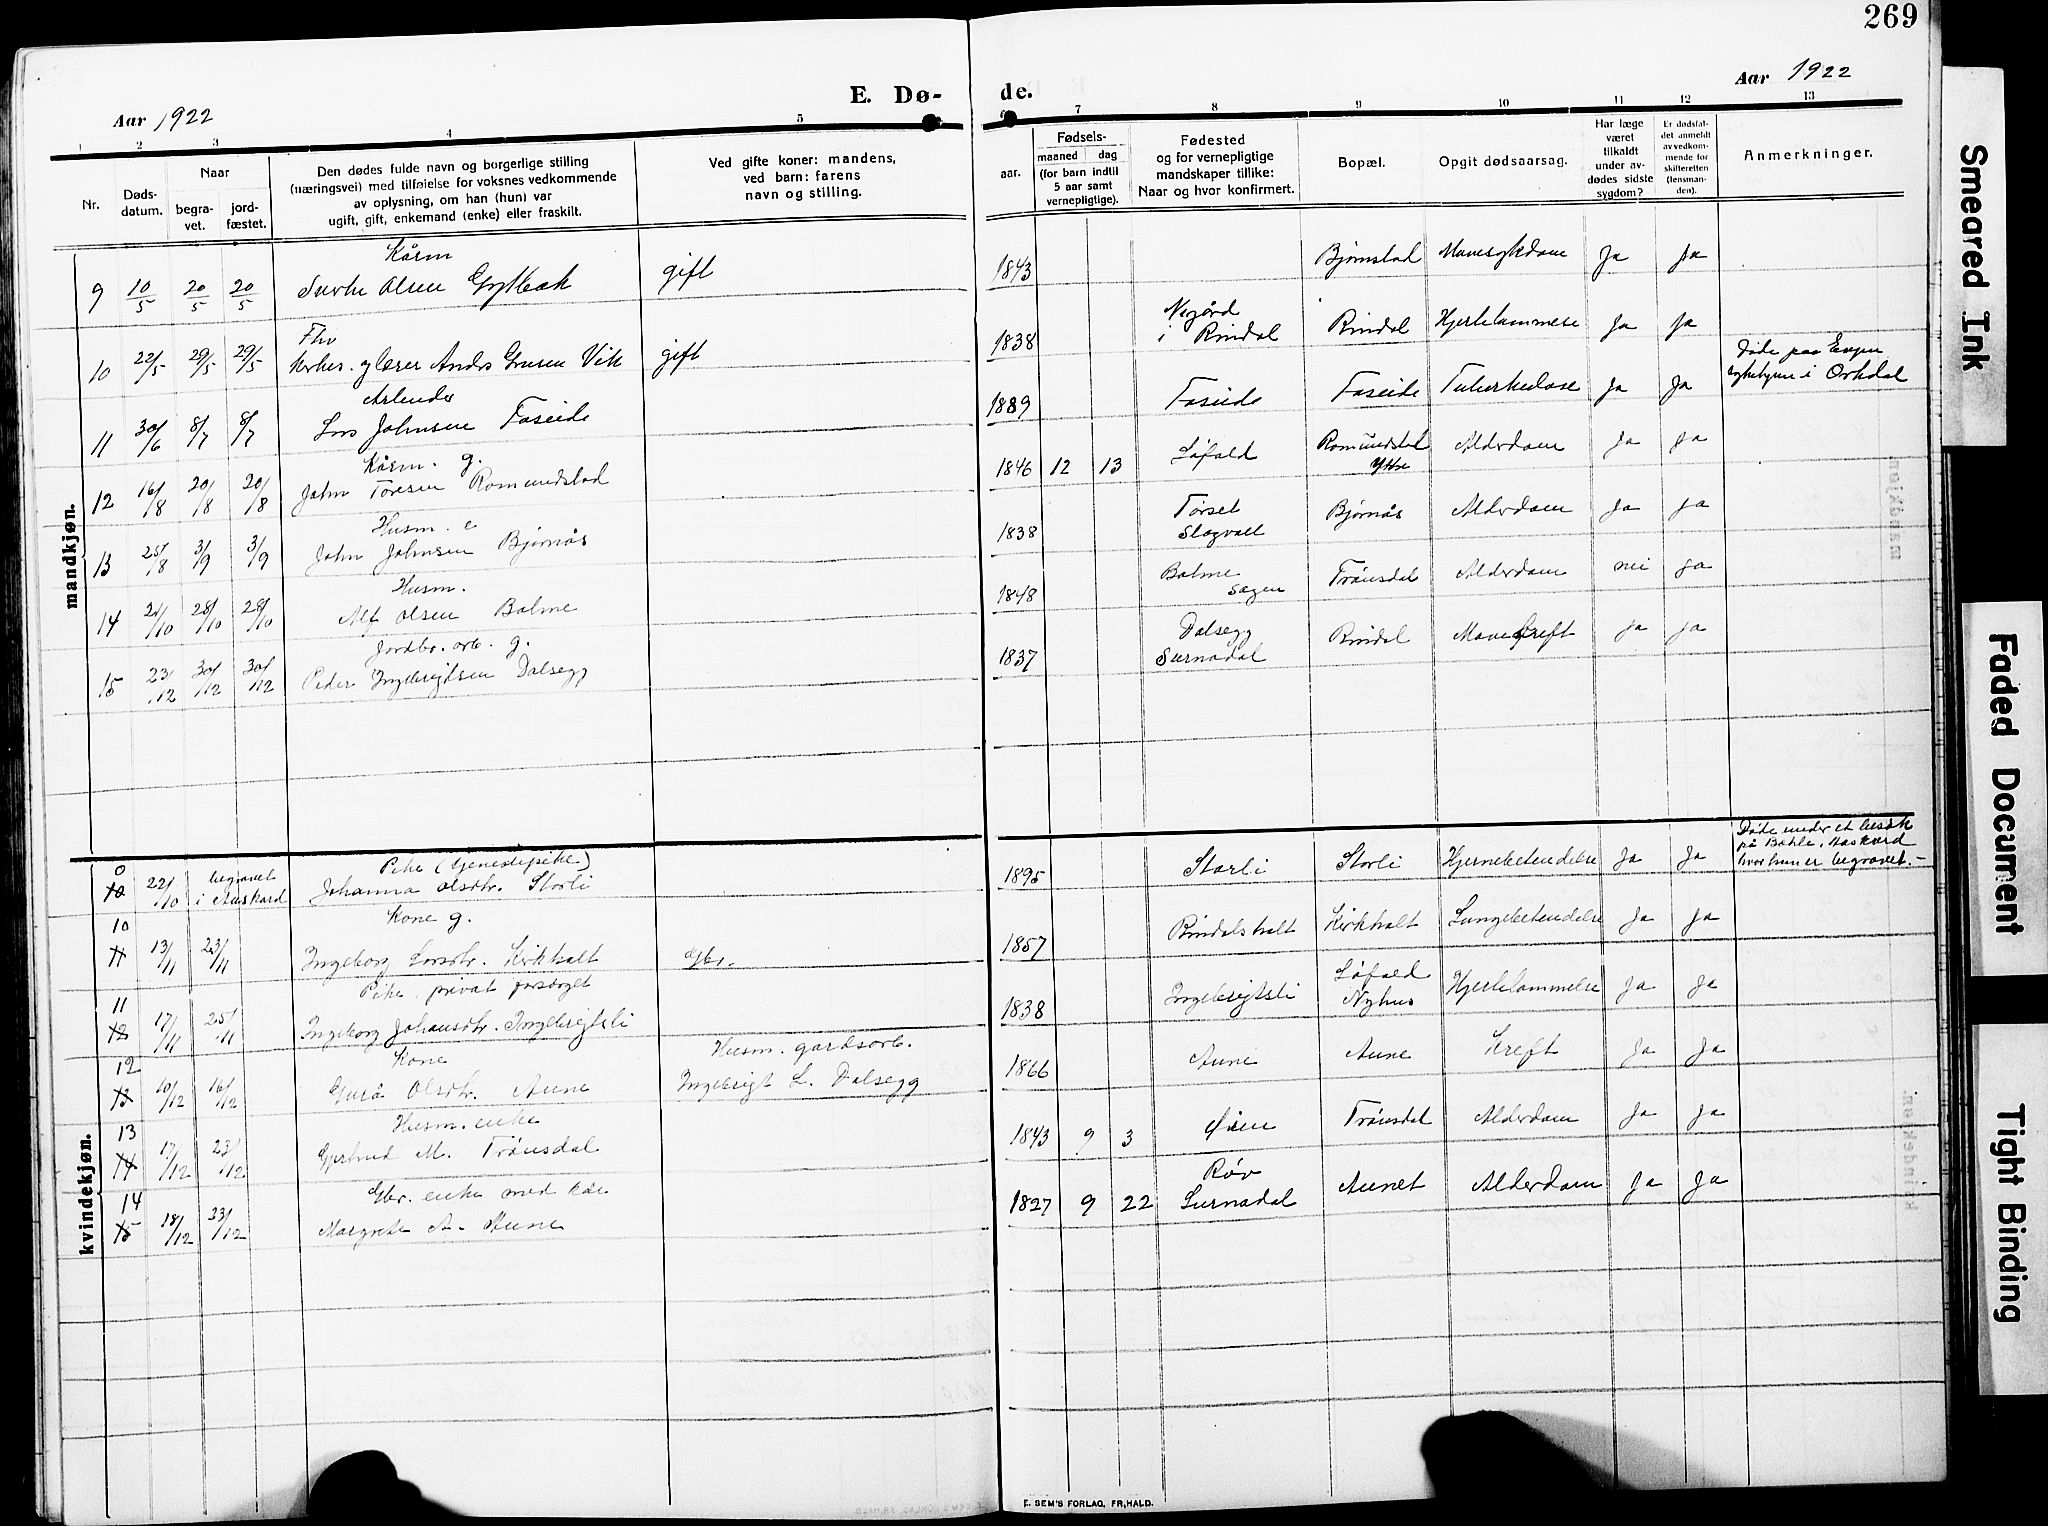 269
Aar 1922
E. Dø-
de.
Aar 1922
1 2 3 4 5 6 7 8 9 10 11 12 13
Nr.
Døds-
datum.
Naar
begra-
vet.
jord-
fæstet.
Den dødes fulde navn og borgerlige stilling
(næringsvei) med tilføielse for voksnes vedkommende
av oplysning, om han (hun) var
ugift, gift, enkemand (enke) eller fraskilt.
Ved gifte koner: mandens,
ved barn: farens
navn og stilling.
aar.
Fødsels-
maaned dag
(for barn indtil
5 aar samt
vernepligtige).
Fødested
og for vernepligtige
mandskaper tillike:
Naar og hvor konfirmert.
Bopæl.
Opgit dødsaarsag.
Har læge
været
tilkaldt
under av-
dødes sidste
sygdom?
Er dødsfal-
det anmeldt
av vedkom-
mende for
skifteretten
(lensman-
den).
Anmerkninger.
mandkjøn.
Kårm
9 10/5 20/5 20/5 Olsen gift 1843 Bjørnstad Mavesykdom Ja Ja
Fhv
10 22/5 29/5 29/5 Anders Vik gift 1838 i Rindal Rindal Hjertelammelse Ja Ja
11 30/6 8/7 8/7 Lars Johnsen Faseide 1889 Faseide Faseide Tuberkulose Ja Ja
Døde paa
sykehjem i Orkdal
Kårm. g.
12 16/8 20/8 20/8 John Toresen Romundstad 1846 12 13 Løfald Romundstad Ytre Alderdom Ja Ja
Husm. e
13 25/8 3/9 3/9 John Johnsen Bjørnås 1838 Torset Slagvoll Bjørnås Alderdom Ja Ja
Husm.
14 21/10 28/10 28/10 Alf Olsen Bolme 1848 Bolme Sagen Trønsdal Alderdom nei Ja
Jordbr. arb. g.
15 23/12 30/12 30/12 Peder Ingebrigtsen Dalsegg 1837 Dalsegg Surnadal Rindal Mavekreft Ja Ja
kvindekjøn.
Pike (tjenestepike)
22/10 begravet i Aaskard Johanna Olsdtr. Storli 1895 Storli Storli Hjernebetendelse Ja Ja
Døde under et besøk
på Bøhle, Aaskard
hvor hun er begravet. -
Kone g.
10 11 13/11 23/11 Ingeborg Larsdtr. Kirkholt Gbr. 1857 Rindalsholt Kirkholt Lungebetendelse Ja Ja
Pike, privat forsørget
11 12 17/11 25/11 Ingeborg Johansdtr. Ingebrigtsli 1838 Ingebrigtsli Løfald Nyhus Hjertelammelse Ja Ja
Kone Husm. gardsarb.
12 13 10/12 16/12 Guru Olsdtr. Aune Ingebrigt L. Dalsegg 1866 Aune Aune Kreft Ja Ja
Husm. enke
13 14 17/12 23/12 Gjertrud M. Trønsdal 1843 9 3 Øien Trønsdal Alderdom Ja Ja
Gbr. enke med kår
14 15 18/12 23/12 Margrete A. Aune 1827 9 22 Røv Surnadal Aunet Alderdom Ja Ja
E. SEM'S FORLAG, FR,HALD.
Smeared Ink
Faded Document
Tight Binding